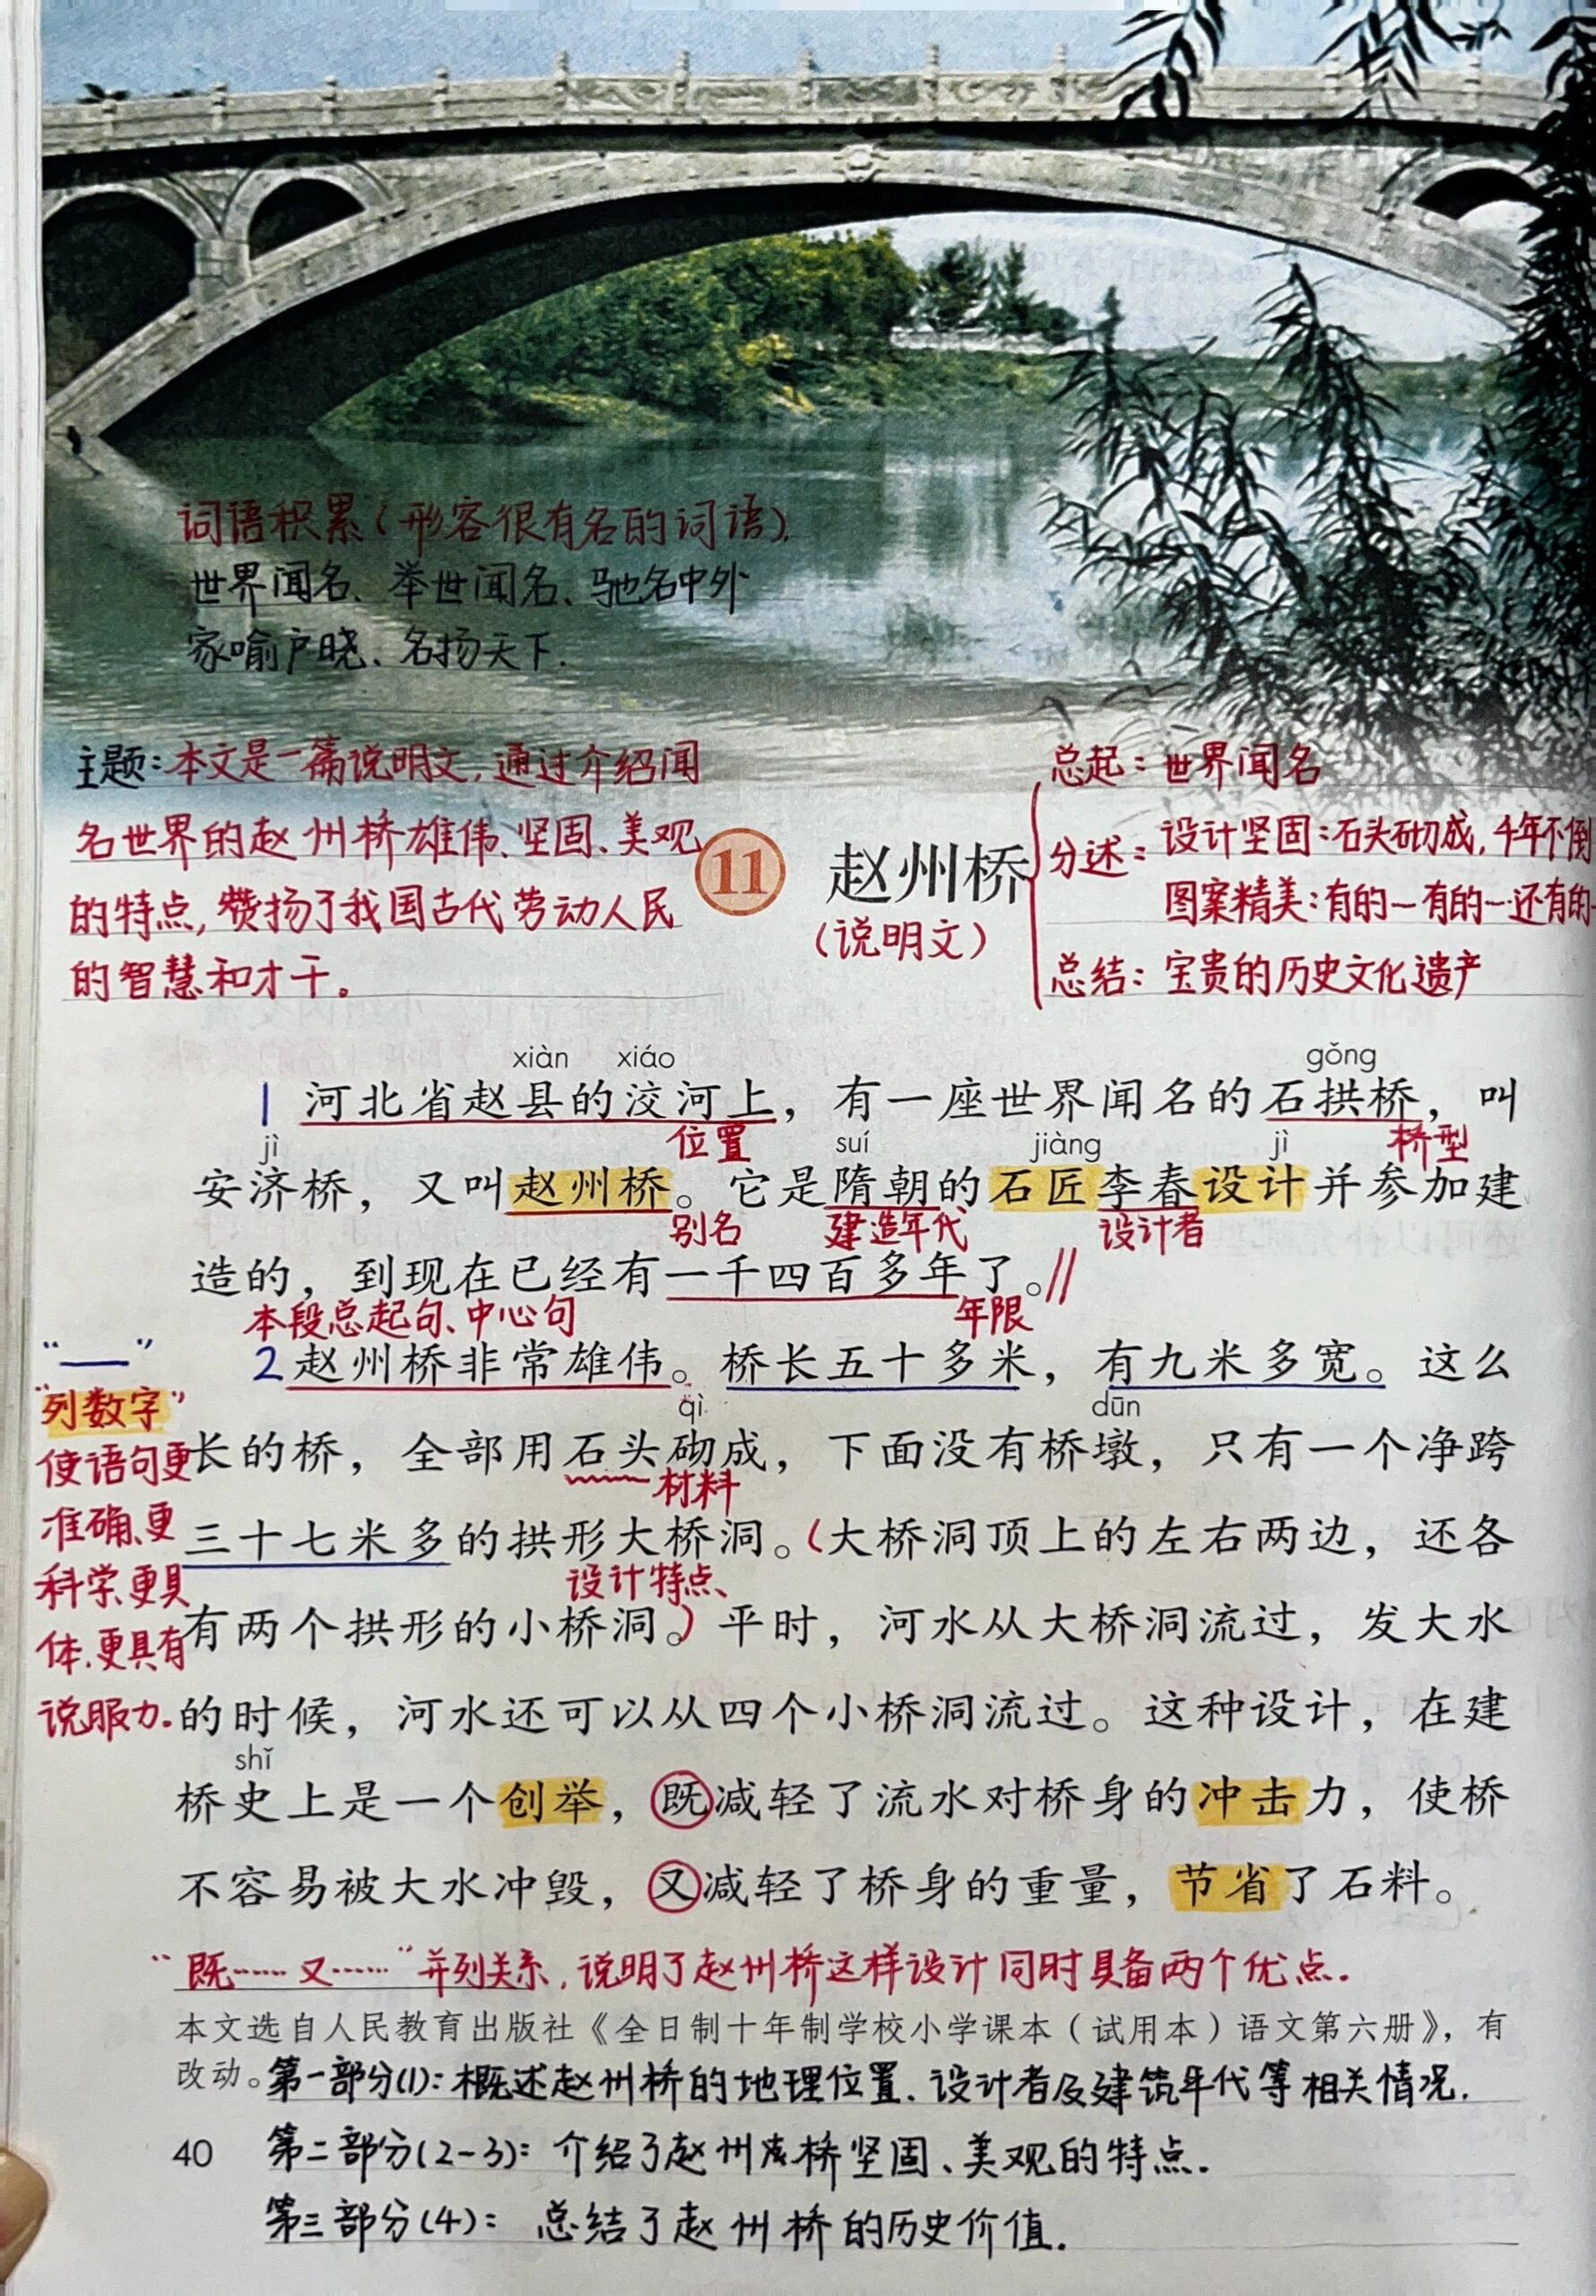 词语积累(形容很有名的词语).
世界闻名、举世闻名、驰名中外
家喻户晓、名扬天下.
主题:本文是一篇说明文,通过介绍闻
名世界的赵州桥雄伟、坚固、美观
的特点,赞扬了我国古代劳动人民
的智慧和才干。
11 赵州桥
(说明文)
总起:世界闻名
分述:设计坚固:石头砌成,千年不倒
图案精美:有的—有的—还有的
总结:宝贵的历史文化遗产
xiàn xiáo gǒng
1 河北省赵县的洨河上,有一座世界闻名的石拱桥,叫
位置 桥型
jì suí jiàng jì
安济桥,又叫赵州桥。它是隋朝的石匠李春设计并参加建
别名 建造年代 设计者
造的,到现在已经有一千四百多年了。//
本段总起句、中心句 年限
2赵州桥非常雄伟。桥长五十多米,有九米多宽。这么
qì dūn
长的桥,全部用石头砌成,下面没有桥墩,只有一个净跨
材料
三十七米多的拱形大桥洞。(大桥洞顶上的左右两边,还各
设计特点、
有两个拱形的小桥洞。)平时,河水从大桥洞流过,发大水
的时候,河水还可以从四个小桥洞流过。这种设计,在建
shǐ
桥史上是一个创举,既减轻了流水对桥身的冲击力,使桥
不容易被大水冲毁,又减轻了桥身的重量,节省了石料。
“——”
“列数字”
使语句更
准确、更
科学、更具
体、更具有
说服力.
“既……又……”并列关系,说明了赵州桥这样设计同时具备两个优点.
本文选自人民教育出版社《全日制十年制学校小学课本(试用本)语文第六册》,有
改动。
第一部分(1):概述赵州桥的地理位置、设计者及建筑年代等相关情况.
第二部分(2-3):介绍了赵州桥坚固、美观的特点.
第三部分(4):总结了赵州桥的历史价值.
40